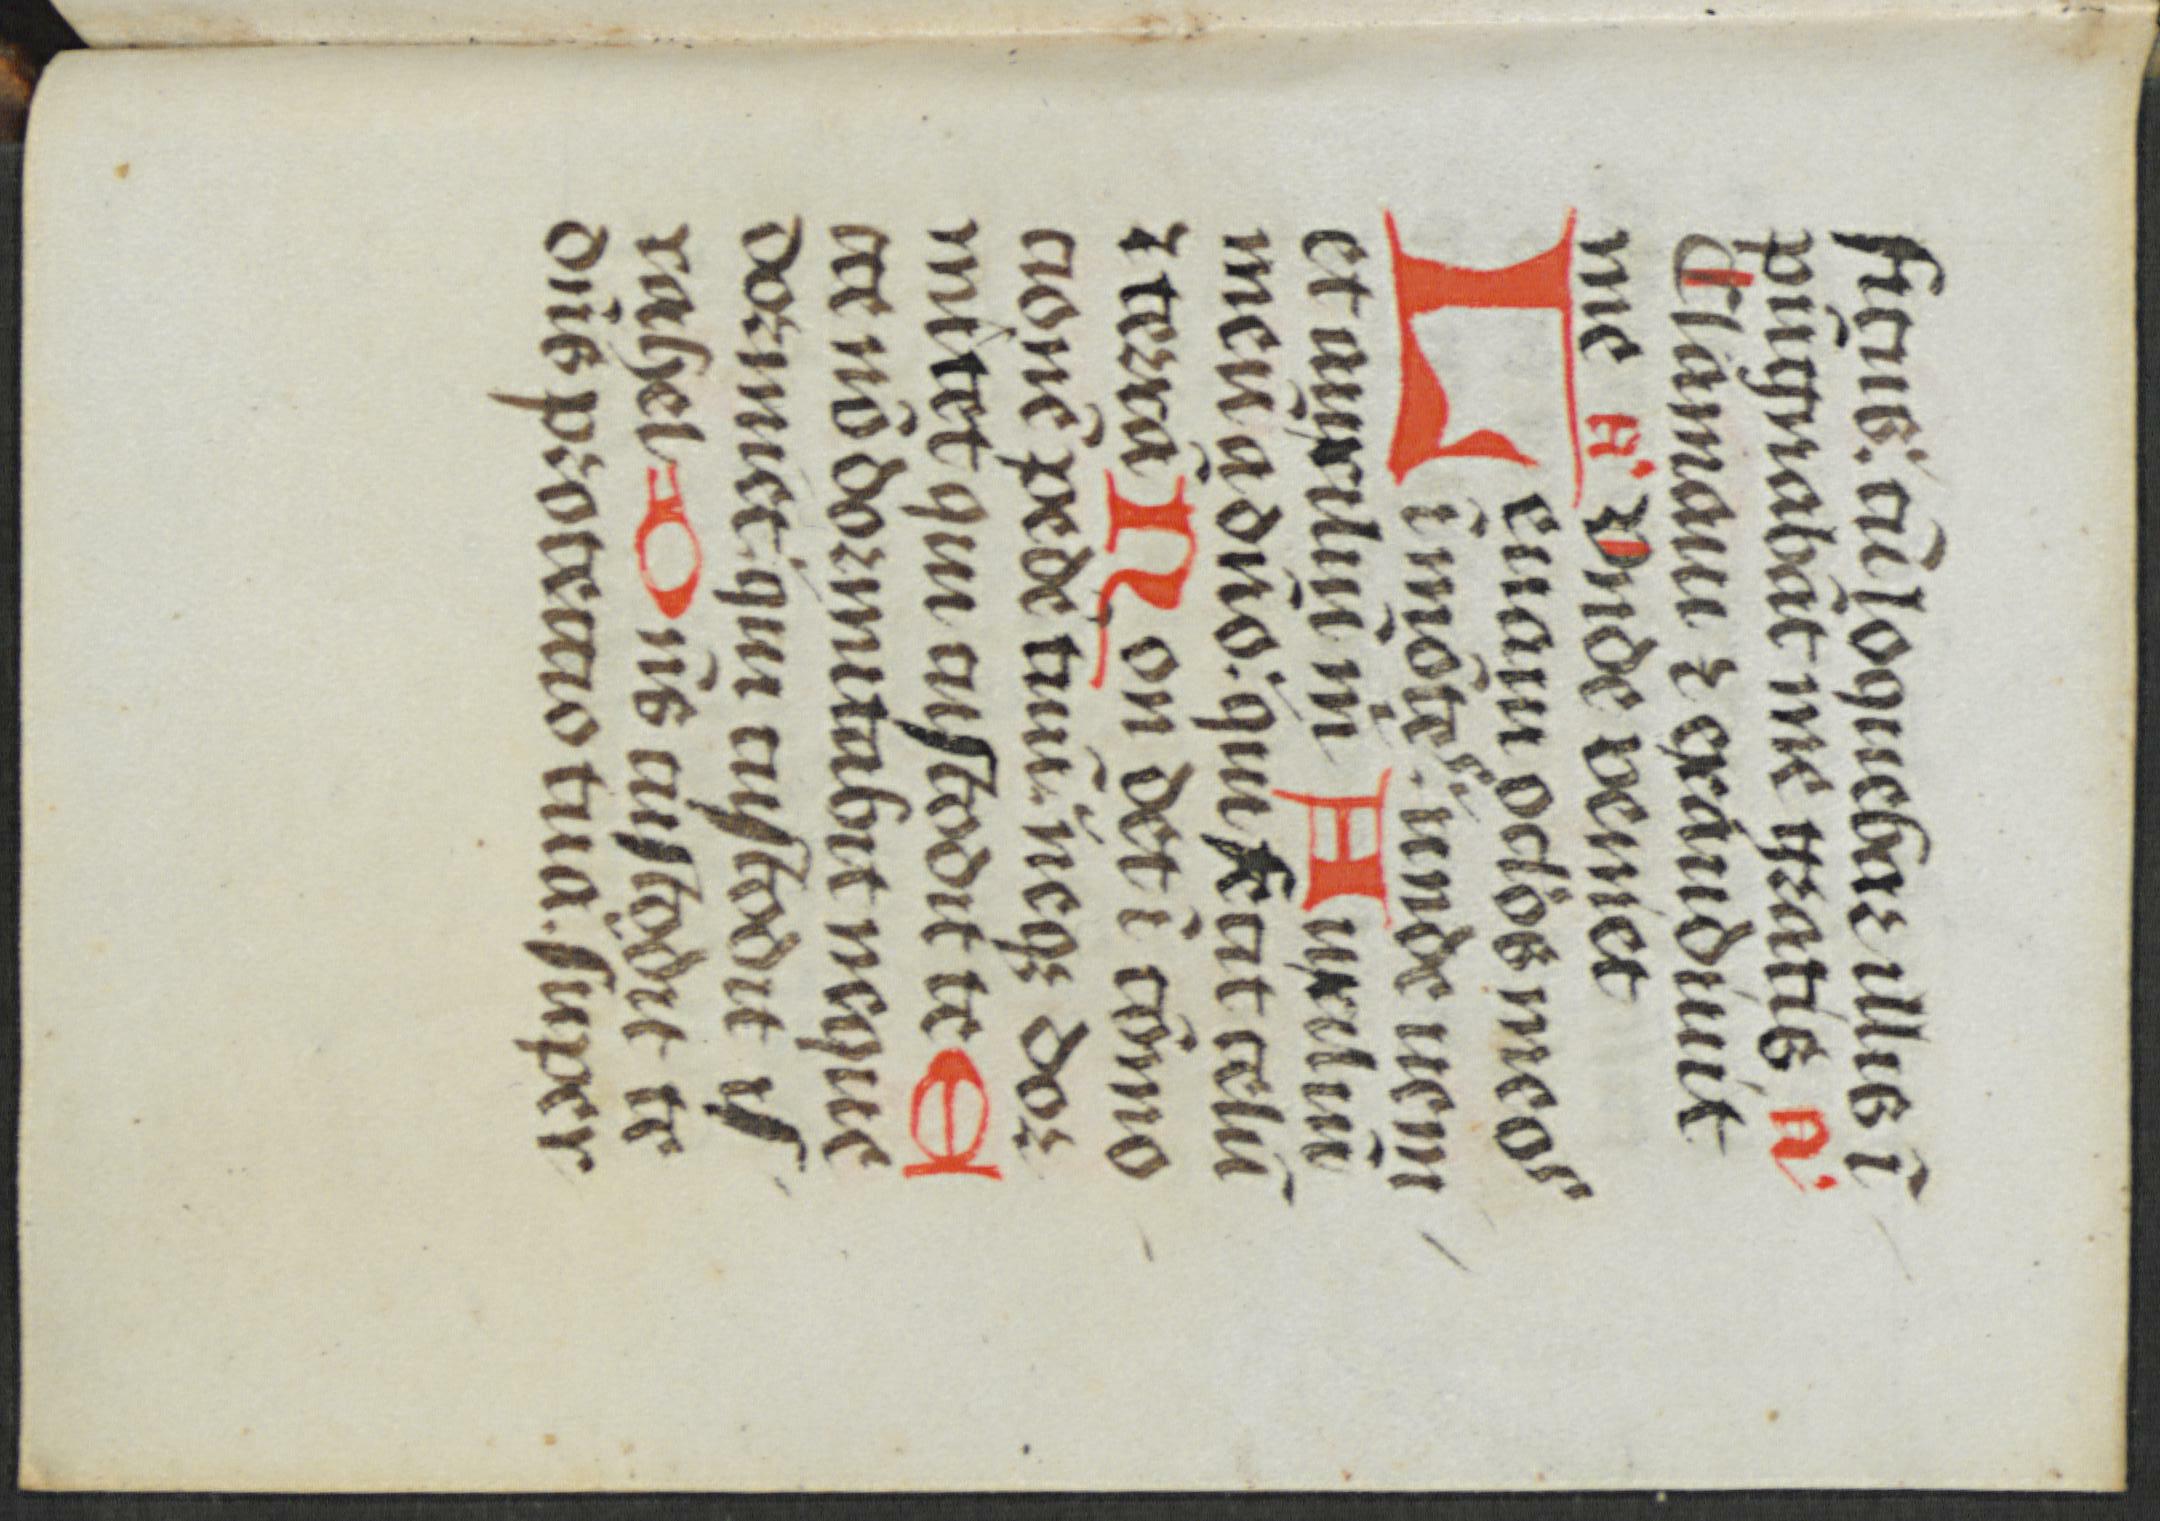 ficus: cū loquebar illis ī
pūgnabāt me gratis a᷒
Clamaui ⁊ exaudiuit
me a᷒ Vnde veniet
Leuaui oclōs meos
ī mōtes: unde ueni
et auxiliū m̄ Auxiliū
meū a dn̄o: qui fecit celū
⁊ terrā Non det ī cōmo
cionē pedē tuū: neqꝫ dor
mitet qui custodit te E
cce nō dormitabit neque
dormiet: qui custodit is
rahel Dn̄s custōdit te
dn̄s protectio tua: super